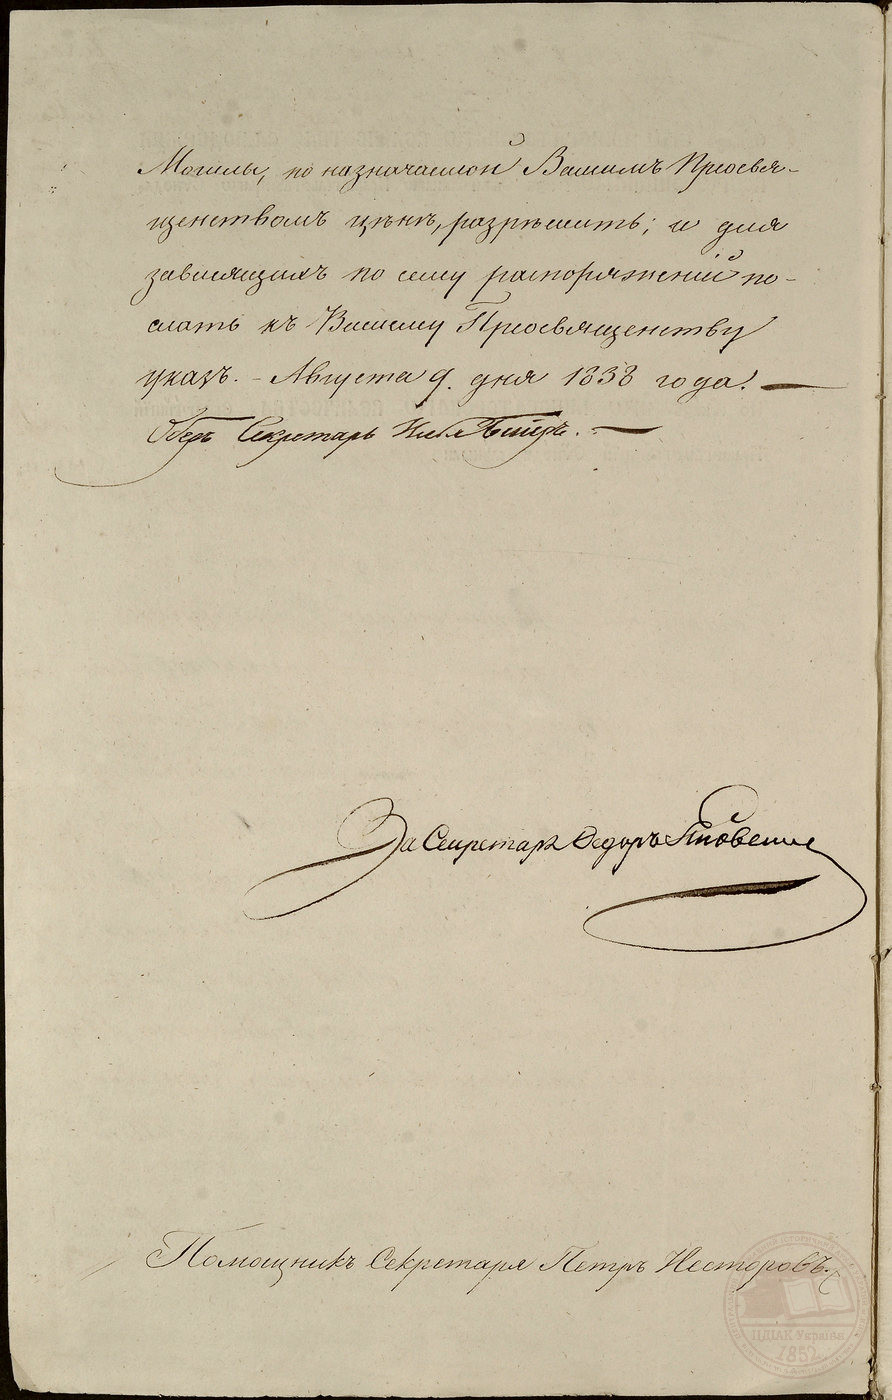 Могилы, по назначаемой Вашимъ Преосвя-
щенствомъ цѣнѣ, разрѣшить; и для
зависящихъ по сему распоряженій по-
слать къ Вашему Преосвященству
указъ. - Августа 9. дня 1838 года. —
Оберъ Секретарь —
За Секретаря Федоръ
Помощникъ Секретаря Петръ Несторовъ.
ЦДІАК України
1852